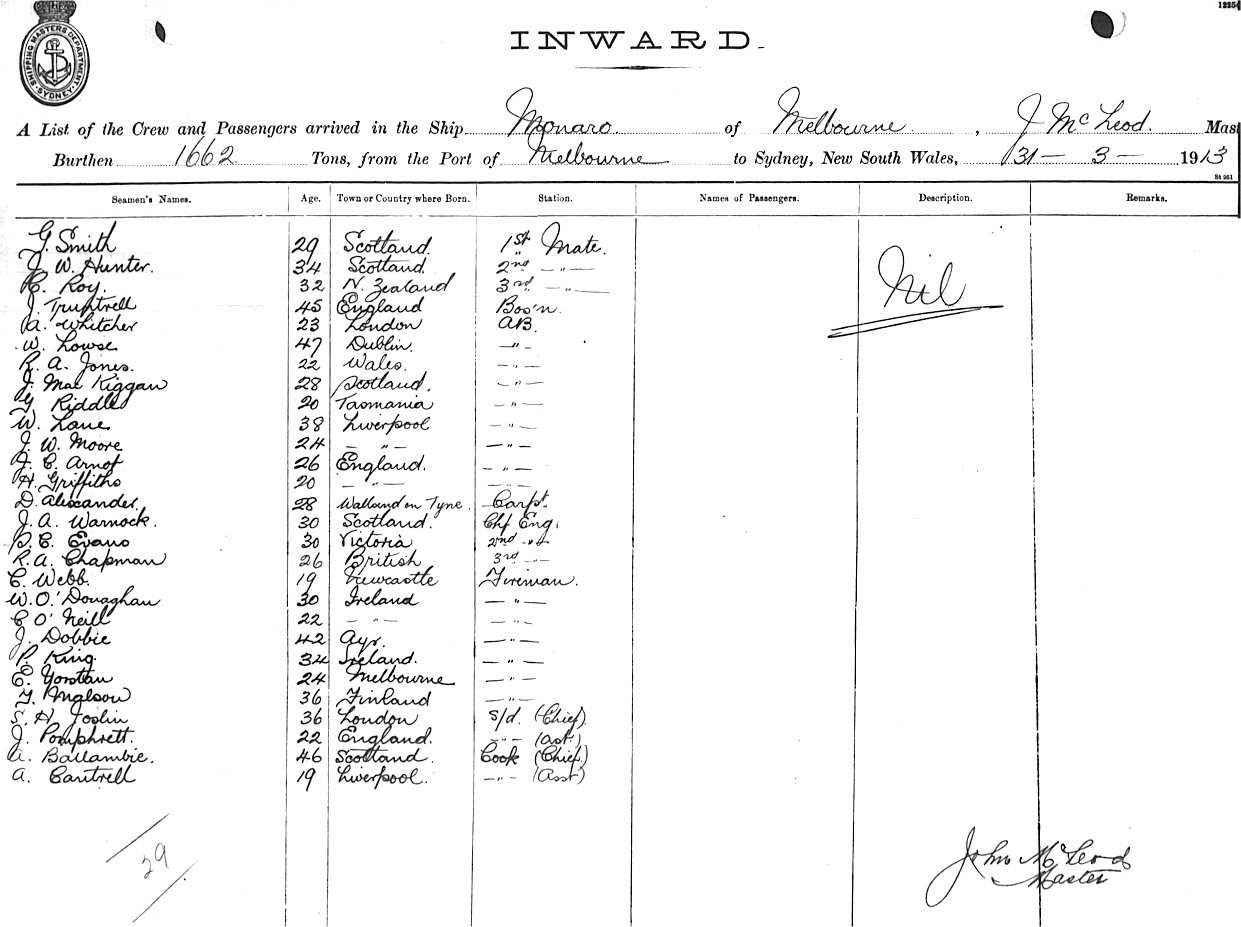 12254
SHIPPING MASTERS DEPARTMENT
SYDNEY
INWARD.
A List of the Crew and Passengers arrived in the Ship Monaro of Melbourne, J McLeod. Mas
Burthen 1662 Tons, from the Port of Melbourne to Sydney, New South Wales, 31 - 3 - 1913
St 951
Seamen's Names. Age. Town or Country where Born. Station. Names of Passengers. Description. Remarks.
G. Smith 29 Scotland. 1st Mate.
J. W. Hunter. 34 Scotland. 2nd -"-
Roy. 32 N. Zealand 3rd -"-
J. Truptrell 45 England Bos'n.
A. Whitcher 23 London AB.
W. Lowse 47 Dublin. -"-
R. A. Jones. 22 Wales. -"-
J. Mac Kiggan 28 Scotland. -"-
G. Riddle 20 Tasmania -"-
W. Lane 38 Liverpool -"-
J. W. Moore 24 -"- -"-
J. C. Arnot 26 England. -"-
H. Griffiths 20 -"- -"-
D. Alexander. 28 Wallsend on Tyne. Carpt.
J. A. Warnock. 30 Scotland. Chf Eng.
Evans 30 Victoria 2nd -"-
R. A. Chapman 26 British 3rd -"-
C. Webb. 19 Newcastle Fireman.
W. O'Donaghan 30 Ireland -"-
C O'Neill 22 -"- -"-
J. Dobbie 42 Ayr. -"-
P. King. 34 Ireland. -"-
E. Yorstan 24 Melbourne -"-
36 Finland -"-
S. H. Joslin 36 London S/d. (Chief)
J. Pomphrett. 22 England. -"- (ast.)
A. Ballambie. 46 Scotland. Cook (Chief)
A. Cantrell 19 Liverpool. -"- (Asst)
Nil
29
John McLeod
Master